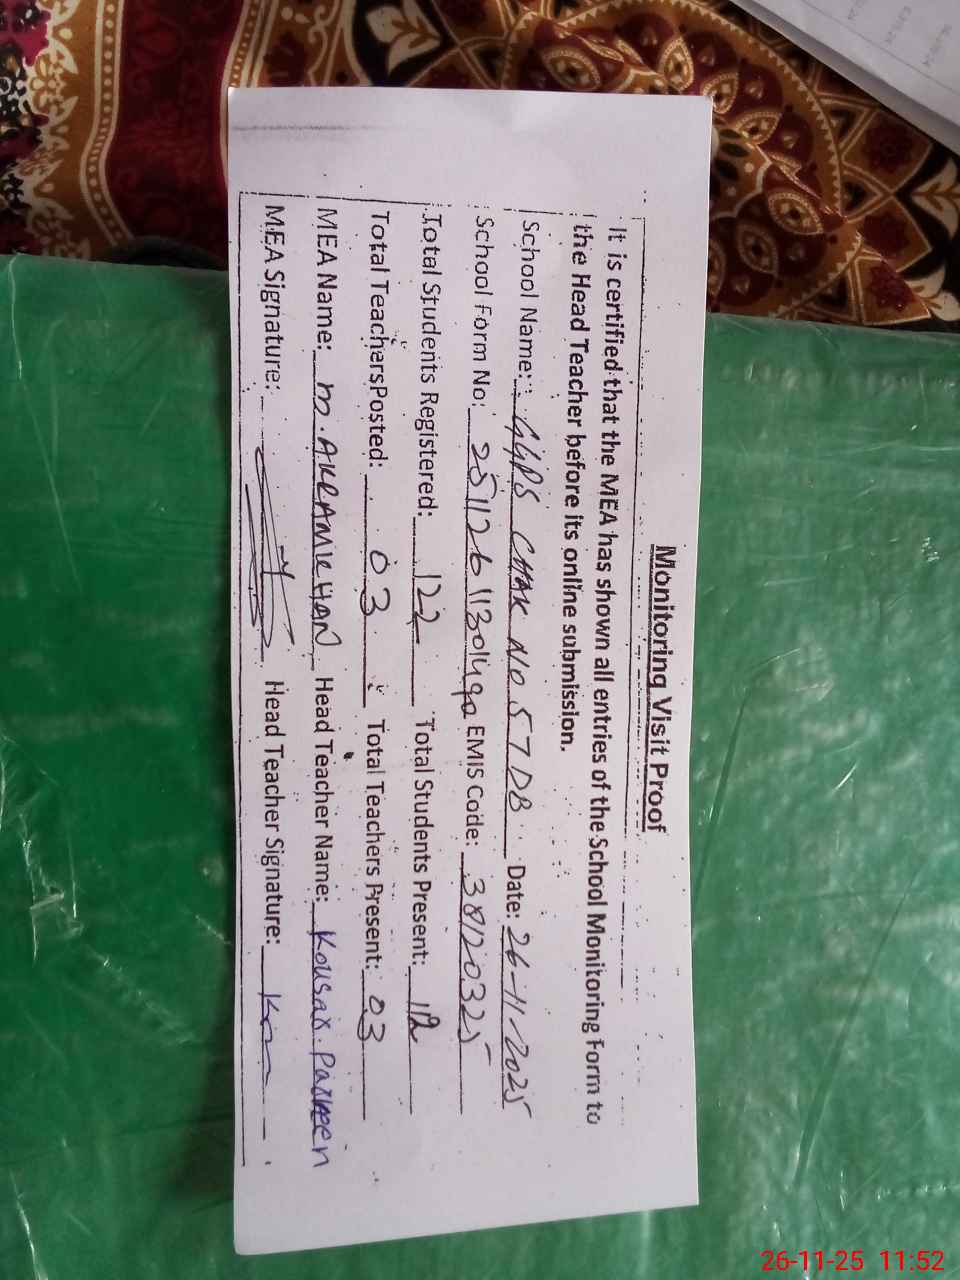 Monitoring Visit Proof
It is certified that the MEA has shown all entries of the School Monitoring Form to
the Head Teacher before its online submission.
School Name: GGPS CHAK NO 57 DB Date: 26-11-2025
School Form No: EMIS Code: 38120325
Total Students Registered: 122 Total Students Present: 112
Total TeachersPosted: 03 Total Teachers Present: 03
MEA Name: M. AKRAM KHAN Head Teacher Name: Kousar Parveen
MEA Signature: Head Teacher Signature:
26-11-25 11:52